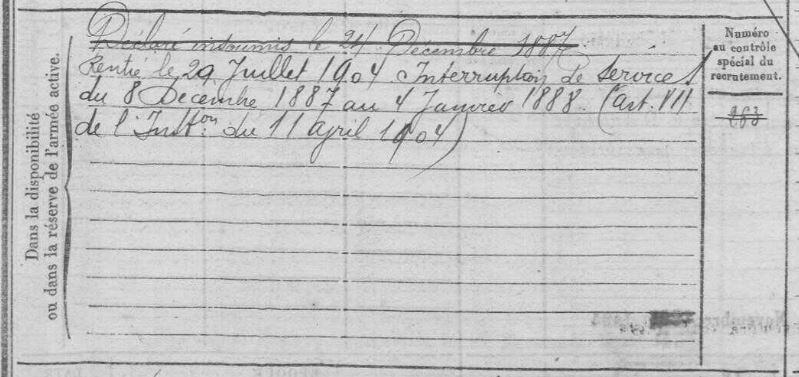 Déclaré insoumis le 24 Décembre 1887
Rentré le 29 Juillet 1904 Interruption de services
du 8 Décembre 1887 au 4 Janvier 1888. (art. VII
de l'Inst.on du 11 april 1904)
Dans la disponibilité
ou dans la réserve de l'armée active.
Numéro
au contrôle
spécial du
recrutement.